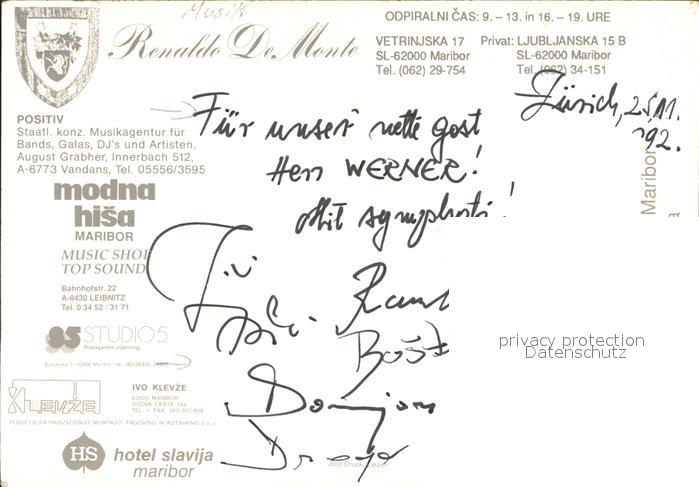 Musik
ODPIRALNI ČAS: 9. – 13. in 16. – 19. URE
Renaldo De Monte
VETRINJSKA 17
SL-62000 Maribor
Tel. (062) 29-754
Privat: LJUBLJANSKA 15 B
SL-62000 Maribor
Tel. (062) 34-151
Zürich, 25.11.
'92.
Für unser nette gost
Herr WERNER!
Mit
POSITIV
Staatl. konz. Musikagentur für
Bands, Galas, DJ's und Artisten,
August Grabher, Innerbach 512,
A-6773 Vandans, Tel. 05556/3595
modna
hiša
MARIBOR
MUSIC SHOP
TOP SOUND
Bahnhofstr. 22
A-8430 LEIBNITZ
Tel. 0 34 52 / 31 71
Maribor
85 STUDIO 5
Propagandni inženiring
KLEVŽE
IVO KLEVŽE
62000 MARIBOR
TITOVA CESTA 24a
PODJETJE ZA PROIZVODNJO, MONTAŽO, TRGOVINO IN INŽENIRING d.o.o.
HS
hotel slavija
maribor
Jošt Druck,
privacy protection
Datenschutz